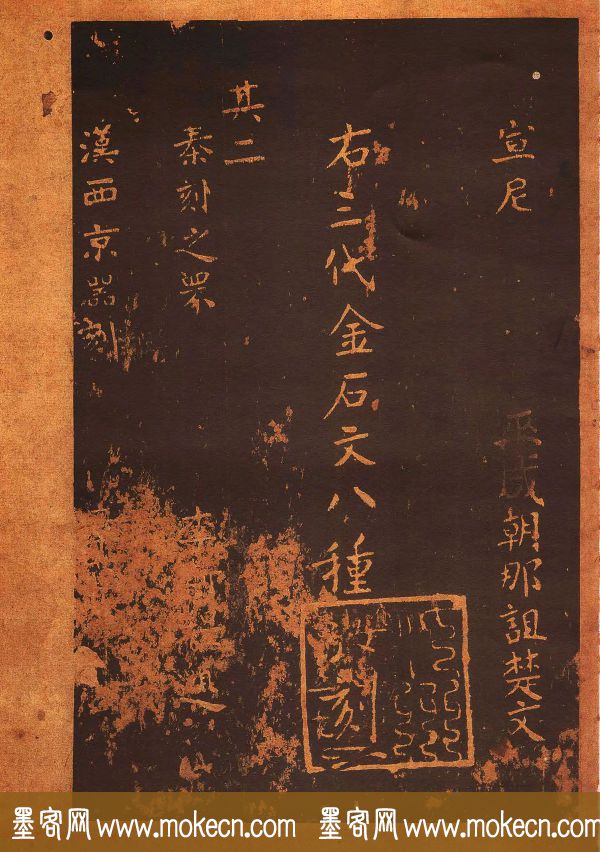 宣尼
巫咸朝那詛楚文
右三代金石文八種
其二
秦刻之罘
李
漢西京器刻
墨客网 www.mokecn.com 墨客网 www.mokecn.com